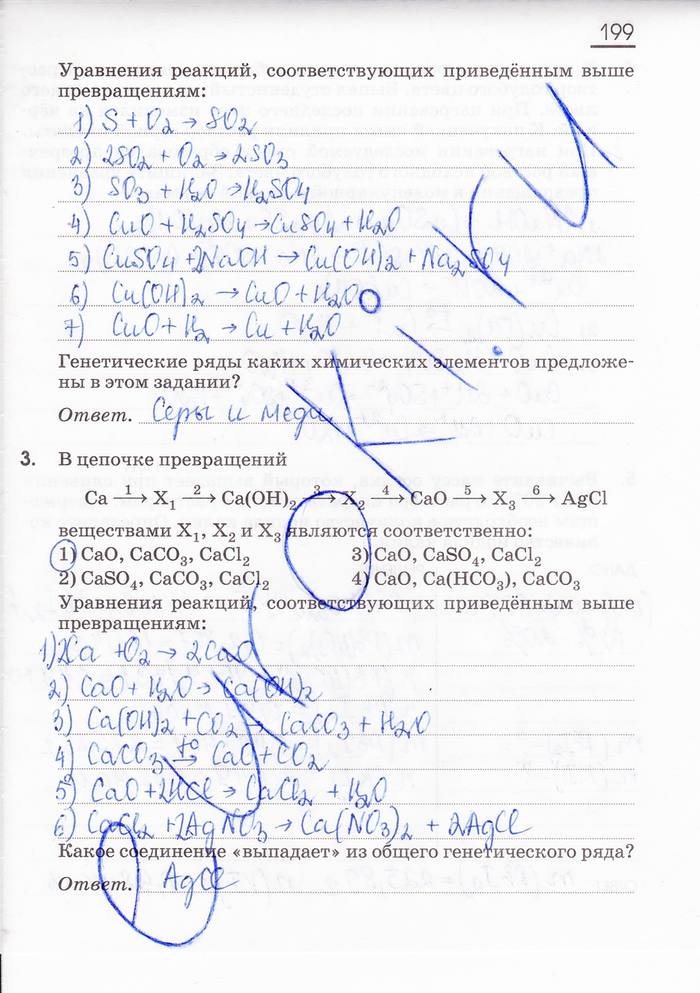 199
Уравнения реакций, соответствующих приведённым выше
превращениям:
1) S + O₂ → SO₂
2) 2SO₂ + O₂ → 2SO₃
3) SO₃ + H₂O → H₂SO₄
4) CuO + H₂SO₄ → CuSO₄ + H₂O
5) CuSO₄ + 2NaOH → Cu(OH)₂ + Na₂SO₄
6) Cu(OH)₂ → CuO + H₂O
7) CuO + H₂ → Cu + H₂O
Генетические ряды каких химических элементов предложе-
ны в этом задании?
Ответ. Серы и меди
3. В цепочке превращений
Ca —1→ X₁ —2→ Ca(OH)₂ —3→ X₂ —4→ CaO —5→ X₃ —6→ AgCl
веществами X₁, X₂ и X₃ являются соответственно:
1) CaO, CaCO₃, CaCl₂ 3) CaO, CaSO₄, CaCl₂
2) CaSO₄, CaCO₃, CaCl₂ 4) CaO, Ca(HCO₃), CaCO₃
Уравнения реакций, соответствующих приведённым выше
превращениям:
1) 2Ca + O₂ → 2CaO
2) CaO + H₂O → Ca(OH)₂
3) Ca(OH)₂ + CO₂ → CaCO₃ + H₂O
4) CaCO₃ t°→ CaO + CO₂
5) CaO + 2HCl → CaCl₂ + H₂O
6) CaCl₂ + 2AgNO₃ → Ca(NO₃)₂ + 2AgCl
Какое соединение «выпадает» из общего генетического ряда?
Ответ. AgCl